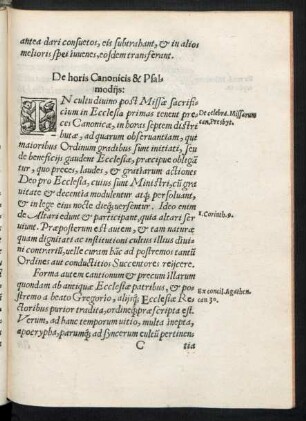 antea dari consuetos, eis subtrahant, & in alios
melioris spei iuuenes, eosdem transferant.
De horis Canonicis & Psal-
modijs:
IN cultu diuino post Missæ sacrifi-
cium in Ecclesia primas tenent pre-
ces Canonicæ, in horas septem distri-
butæ, ad quarum obseruantiam, qui
maioribus Ordinum gradibus sunt initiati, seu
de beneficijs gaudent Ecclesiæ, præcipue obligā-
tur, quo preces, laudes, & gratiarum actiones
Deo pro Ecclesia, cuius sunt Ministri, cū graui-
tate & decentia modulentur atq; persoluant,
& in lege eius nocte dieq; versentur. Ideo enim
de Altari edunt & participant, quia altari ser
uiunt. Præposterum est autem, & tam naturæ
quam dignitati ac institutioni cultus illius diui-
ni contrarium, uelle curam hāc ad postremos tantū
Ordines aut conductitios Succentores reijcere.
Forma autem cantionum & precum illarum
quondam ab antiquæ Ecclesiæ patribus, & po-
stremo a beato Gregorio, alijsq; Ecclesiæ Re-
ctoribus purior tradita, ordineq; præscripta est.
Verum, ad hanc temporum uitio, multa inepta,
apocrypha, parumq; ad syncerum cultū pertinen-
C tia
De celebra. Missarum
can. Presbyt.
1. Corinth. 9.
Ex concil. Agathen.
can 30.